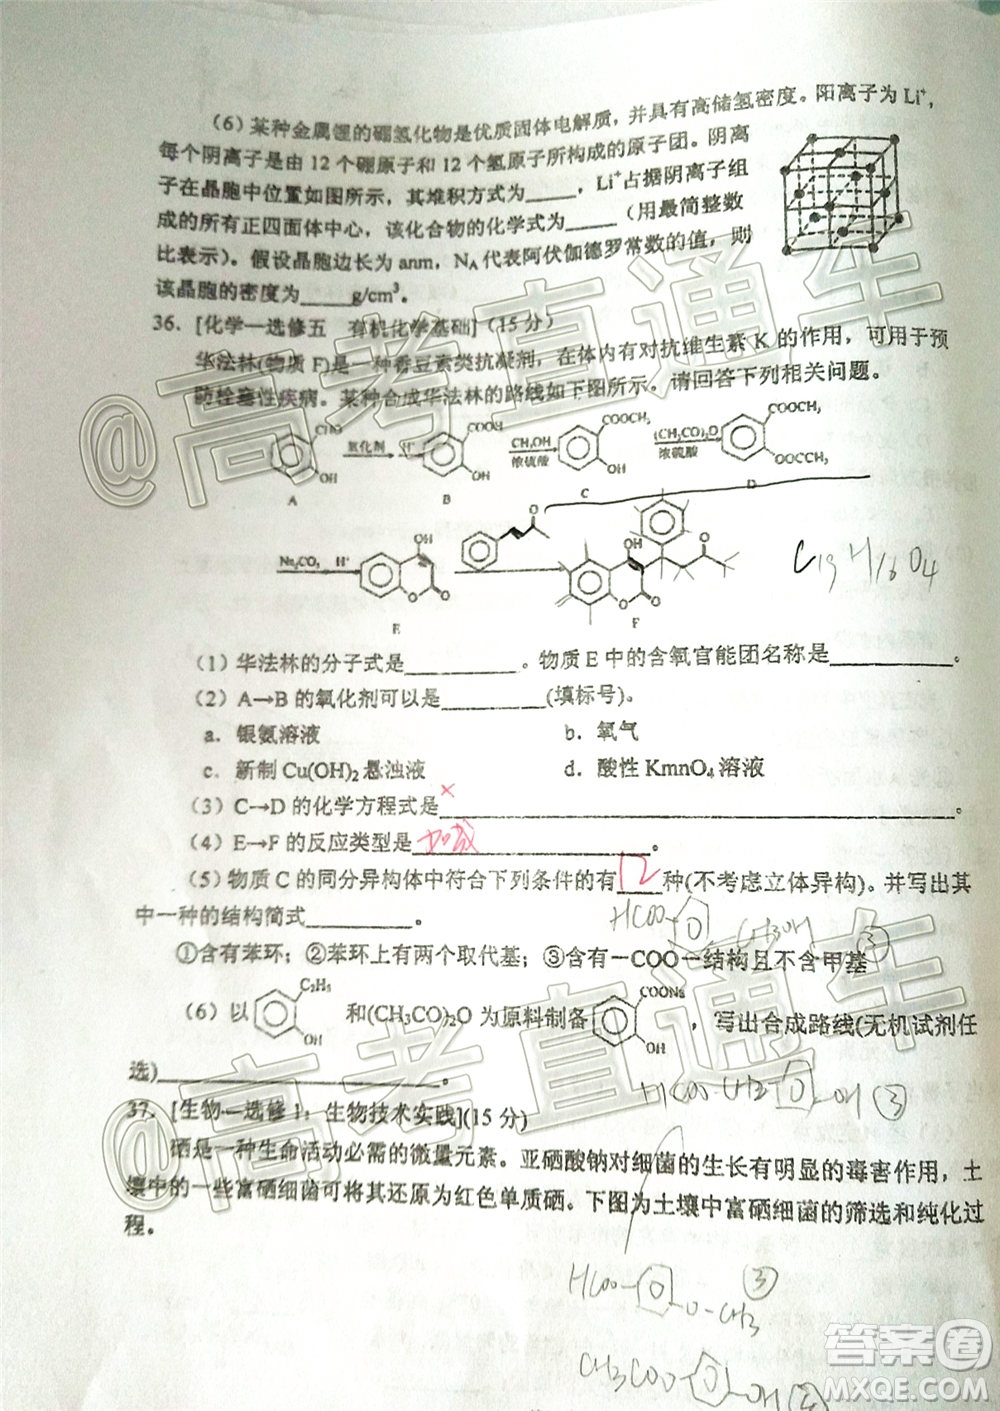 (6)某种金属锂的硼氢化物是优质固体电解质，并具有高储氢密度。阳离子为 Li⁺，
每个阴离子是由 12 个硼原子和 12 个氢原子所构成的原子团。阴离
子在晶胞中位置如图所示，其堆积方式为_____，Li⁺占据阴离子组
成的所有正四面体中心，该化合物的化学式为_____（用最简整数
比表示）。假设晶胞边长为 anm，N_A 代表阿伏伽德罗常数的值，则
该晶胞的密度为_____g/cm³。
36. [化学一选修五 有机化学基础]（15 分）
华法林(物质 F)是一种香豆素类抗凝剂，在体内有对抗维生素 K 的作用，可用于预
防栓塞性疾病。某种合成华法林的路线如下图所示。请回答下列相关问题。
CHO OH A
氧化剂 H⁺
COOH OH B
CH₃OH 浓硫酸
COOCH₃ OH C
(CH₃CO)₂O 浓硫酸
COOCH₃ OOCCH₃ D
Na₂CO₃ H⁺
OH O O E
O
OH O O O F
C19H16O4
（1）华法林的分子式是__________。物质 E 中的含氧官能团名称是__________。
（2）A→B 的氧化剂可以是_________(填标号)。
a．银氨溶液 b．氧气
c．新制 Cu(OH)₂ 悬浊液 d．酸性 KmnO₄ 溶液
（3）C→D 的化学方程式是__________。
×
（4）E→F 的反应类型是 加成 。
（5）物质 C 的同分异构体中符合下列条件的有 12 种(不考虑立体异构)。并写出其
中一种的结构简式_________。
HCOO CH2OH ③
①含有苯环；②苯环上有两个取代基；③含有—COO—结构且不含甲基
（6）以 C₂H₅ OH 和(CH₃CO)₂O 为原料制备 COONa OH ，写出合成路线(无机试剂任
选)__________。
HCOO-CH2 -OH ③
37. [生物一选修 1：生物技术实践](15 分)
硒是一种生命活动必需的微量元素。亚硒酸钠对细菌的生长有明显的毒害作用，土
壤中的一些富硒细菌可将其还原为红色单质硒。下图为土壤中富硒细菌的筛选和纯化过
程。
HCOO- -O-CH3 ③
CH3COO -OH
@高考直通车
@高考直通车
答案圈
MXQE.COM